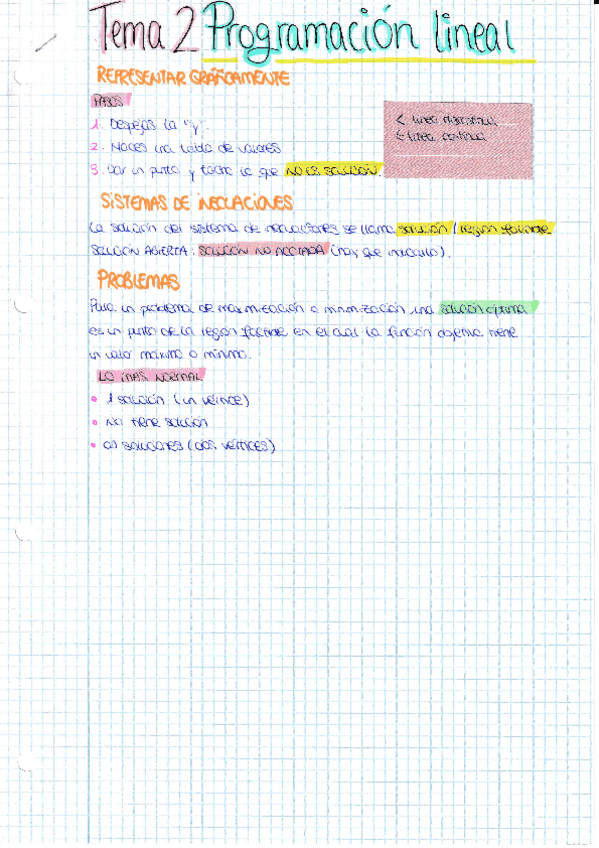 Tema 2 Programación lineal
REPRESENTAR GRÁFICAMENTE
PASOS
1. Despejas la "y".
2. Haces una tabla de valores
3. Dar un punto y tacho lo que NO ES SOLUCIÓN.
< línea discontinua
≤ línea continua
SISTEMAS DE INECUACIONES
La solución del sistema de inecuaciones se llama solución / región factible
SOLUCIÓN ABIERTA: SOLUCIÓN NO ACOTADA (hay que indicarlo).
PROBLEMAS
Para un problema de maximización o minimización, una solución óptima
es un punto de la región factible en el cual la función objetivo tiene
un valor máximo o mínimo.
LO MÁS NORMAL
• 1 solución (un vértice)
• No tiene solución
• ∞ soluciones (dos vértices)